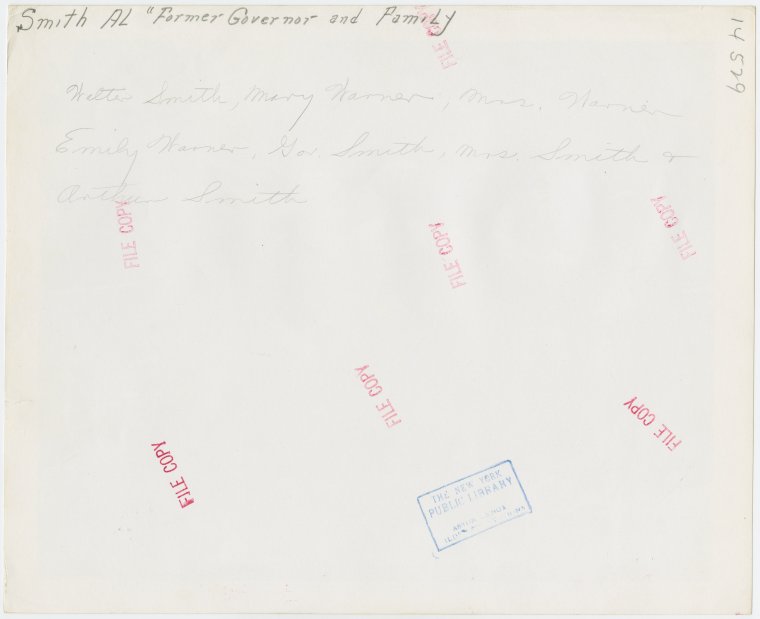 Smith AL "Former Governor and Family
14579
Walter Smith, Mary Warner, Mrs. Warner
Emily Warner, Gov. Smith, Mrs. Smith &
Arthur Smith
FILE COPY
FILE COPY
FILE COPY
FILE COPY
FILE COPY
FILE COPY
FILE COPY
THE NEW YORK
PUBLIC LIBRARY